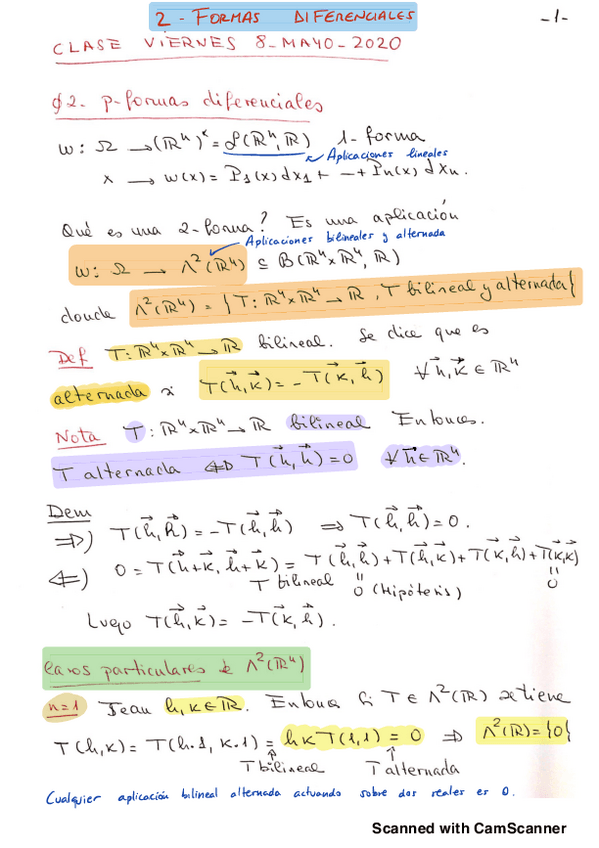 2 - FORMAS DIFERENCIALES
-1-
CLASE VIERNES 8-MAYO-2020
§2- p-formas diferenciales
w: Ω → (ℝⁿ)* = ℒ(ℝⁿ, ℝ) 1-forma
Aplicaciones lineales
x → w(x) = P₁(x)dx₁ + -- + Pn(x) dxn.
Qué es una 2-forma? Es una aplicación
Aplicaciones bilineales y alternada
w: Ω → Λ²(ℝⁿ) ⊆ B(ℝⁿ×ℝⁿ, ℝ)
donde Λ²(ℝⁿ) = {T: ℝⁿ×ℝⁿ → ℝ, T bilineal y alternada}
Def T: ℝⁿ×ℝⁿ → ℝ bilineal. Se dice que es
alternada si T(h⃗, k⃗) = -T(k⃗, h⃗) ∀ h⃗, k⃗ ∈ ℝⁿ
Nota T: ℝⁿ×ℝⁿ → ℝ bilineal Entonces.
T alternada ⇔ T(h⃗, h⃗) = 0 ∀ h⃗ ∈ ℝⁿ.
Dem
⇒) T(h⃗, h⃗) = -T(h⃗, h⃗) ⇒ T(h⃗, h⃗) = 0.
⇐) 0 = T(h⃗+k⃗, h⃗+k⃗) = T(h⃗, h⃗) + T(h⃗, k⃗) + T(k⃗, h⃗) + T(k⃗, k⃗)
T bilineal = 0 (Hipótesis) = 0
Luego T(h⃗, k⃗) = -T(k⃗, h⃗).
Casos particulares de Λ²(ℝⁿ)
n=1 Sean h, k ∈ ℝ. Entonces si T ∈ Λ²(ℝ) se tiene
T(h, k) = T(h·1, k·1) = hk T(1,1) = 0 ⇒ Λ²(ℝ) = {0}
T bilineal T alternada
Cualquier aplicación bilineal alternada actuando sobre dos reales es 0.
Scanned with CamScanner